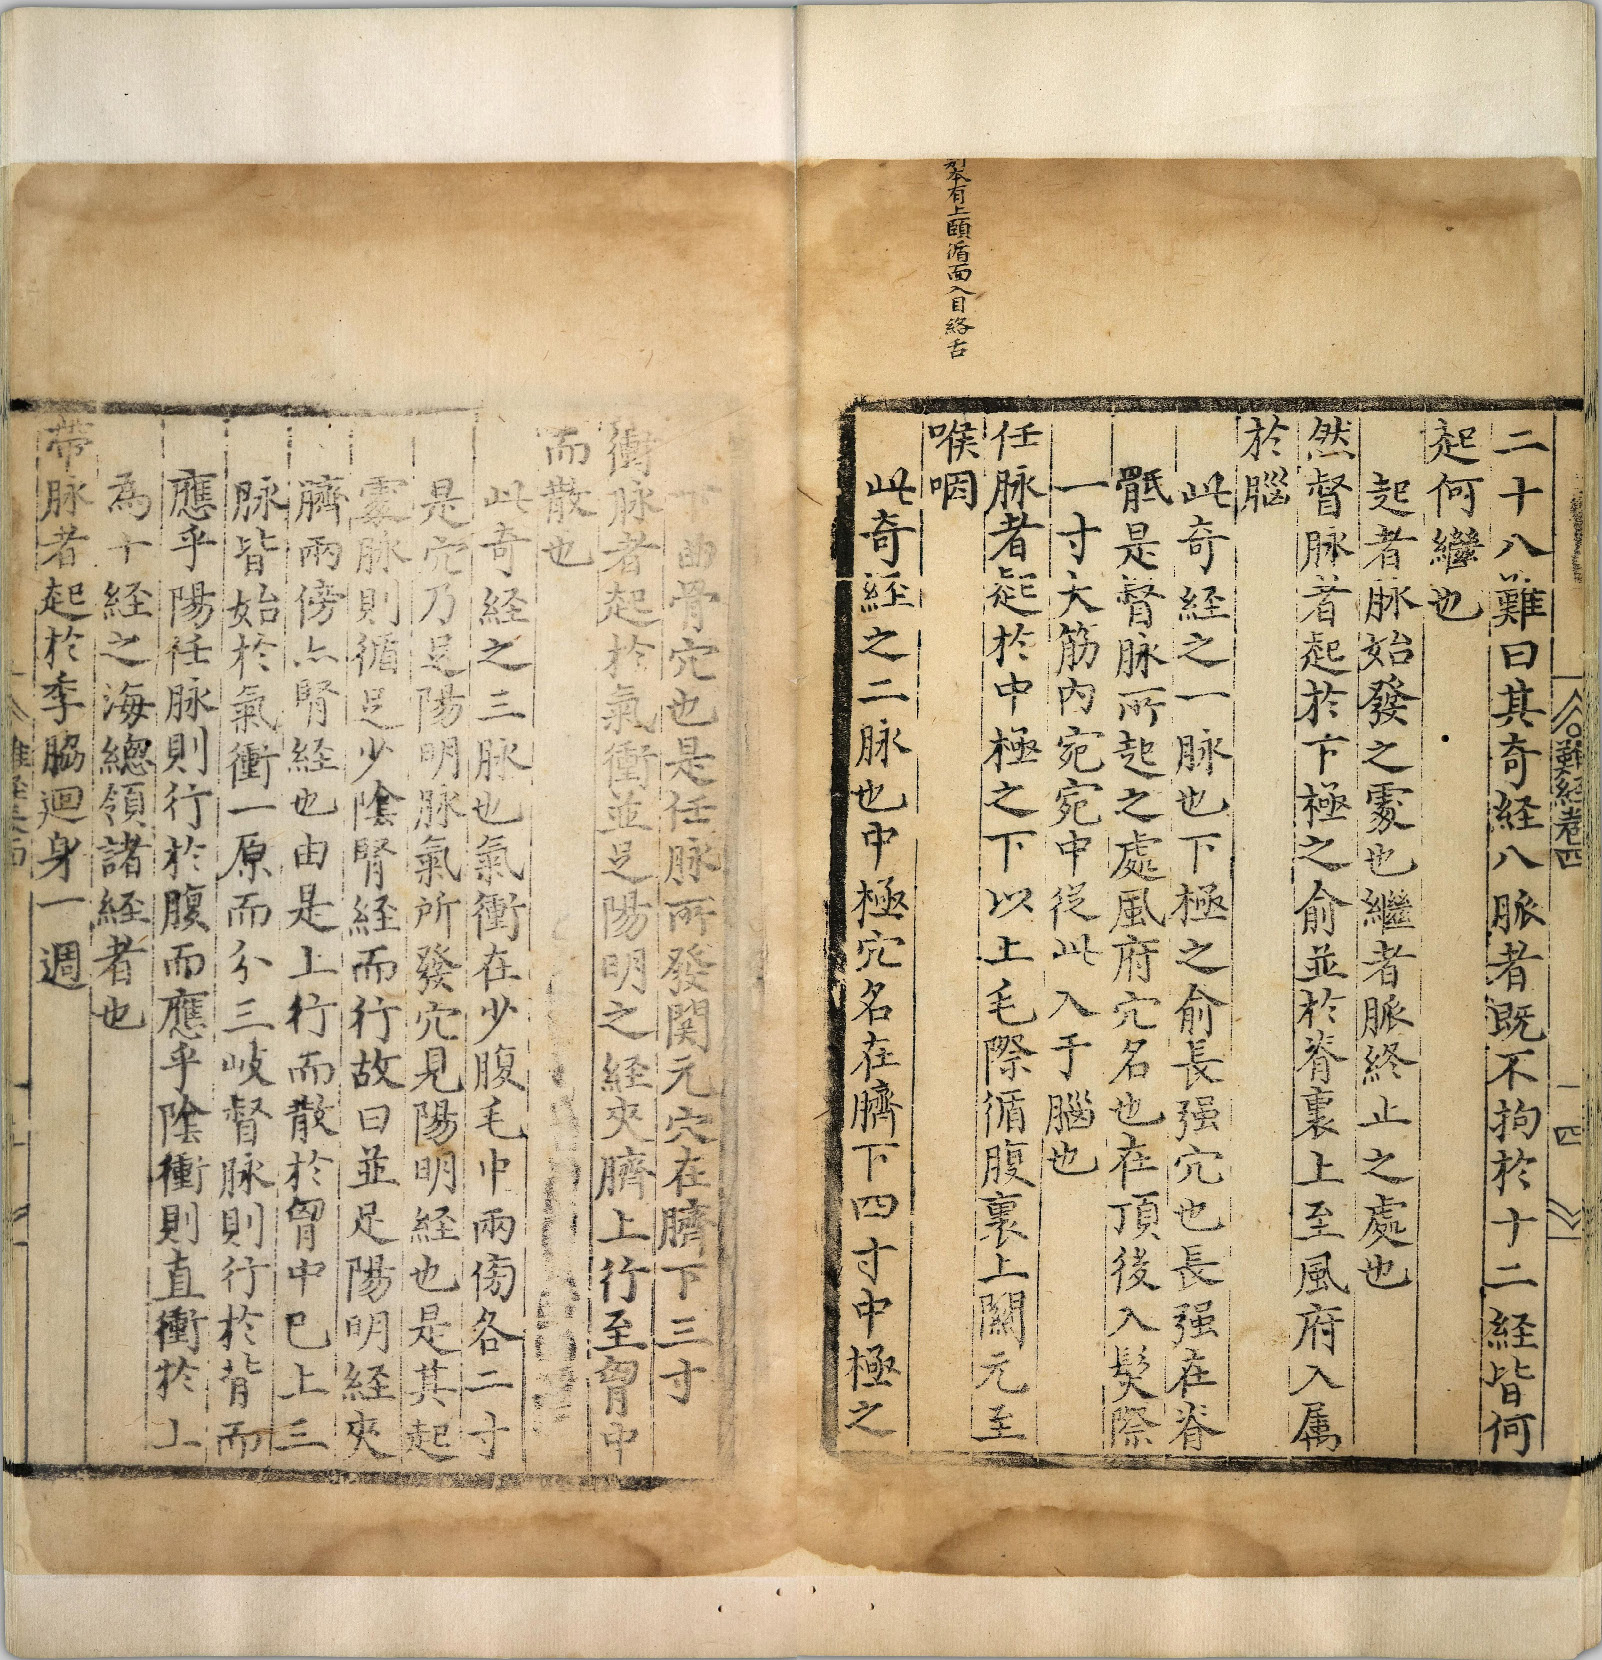 本有上頤循面入目絡舌
二十八難曰其奇経八脈者既不拘於十二経皆何
起何繼也
起者脉始發之䖏也繼者脈終止之處也
然督脉者起於下極之俞並於脊裏上至風府入属
於腦
此奇経之一脉也下極之俞長强穴也長强在脊
骶是督脉所起之處風府穴名也在頂後入髮際
一寸大筋内宛宛中従此入于腦也
任脉者起於中極之下以上毛際循腹裏上關元至
喉咽
此奇経之二脉也中極穴名在臍下四寸中極之
下曲骨穴也是任脉所發関元穴在臍下三寸
衝脉者起於氣衝並足陽明之経夾臍上行至胷中
而散也
此奇経之三脉也氣衝在少腹毛中兩傍各二寸
是穴乃足陽明脉氣所發穴見陽明経也是其起
䖏脉則循足少陰腎経而行故曰並足陽明経夾
臍兩傍亦腎経也由是上行而散於胷中巳上三
脉皆始於氣衝一原而分三岐督脉則行於背而
應乎陽任脉則行於腹而應乎陰衝則直衝於上
為十経之海緫領諸経者也
帶脉者起於季脇迴身一週
難経卷四
四